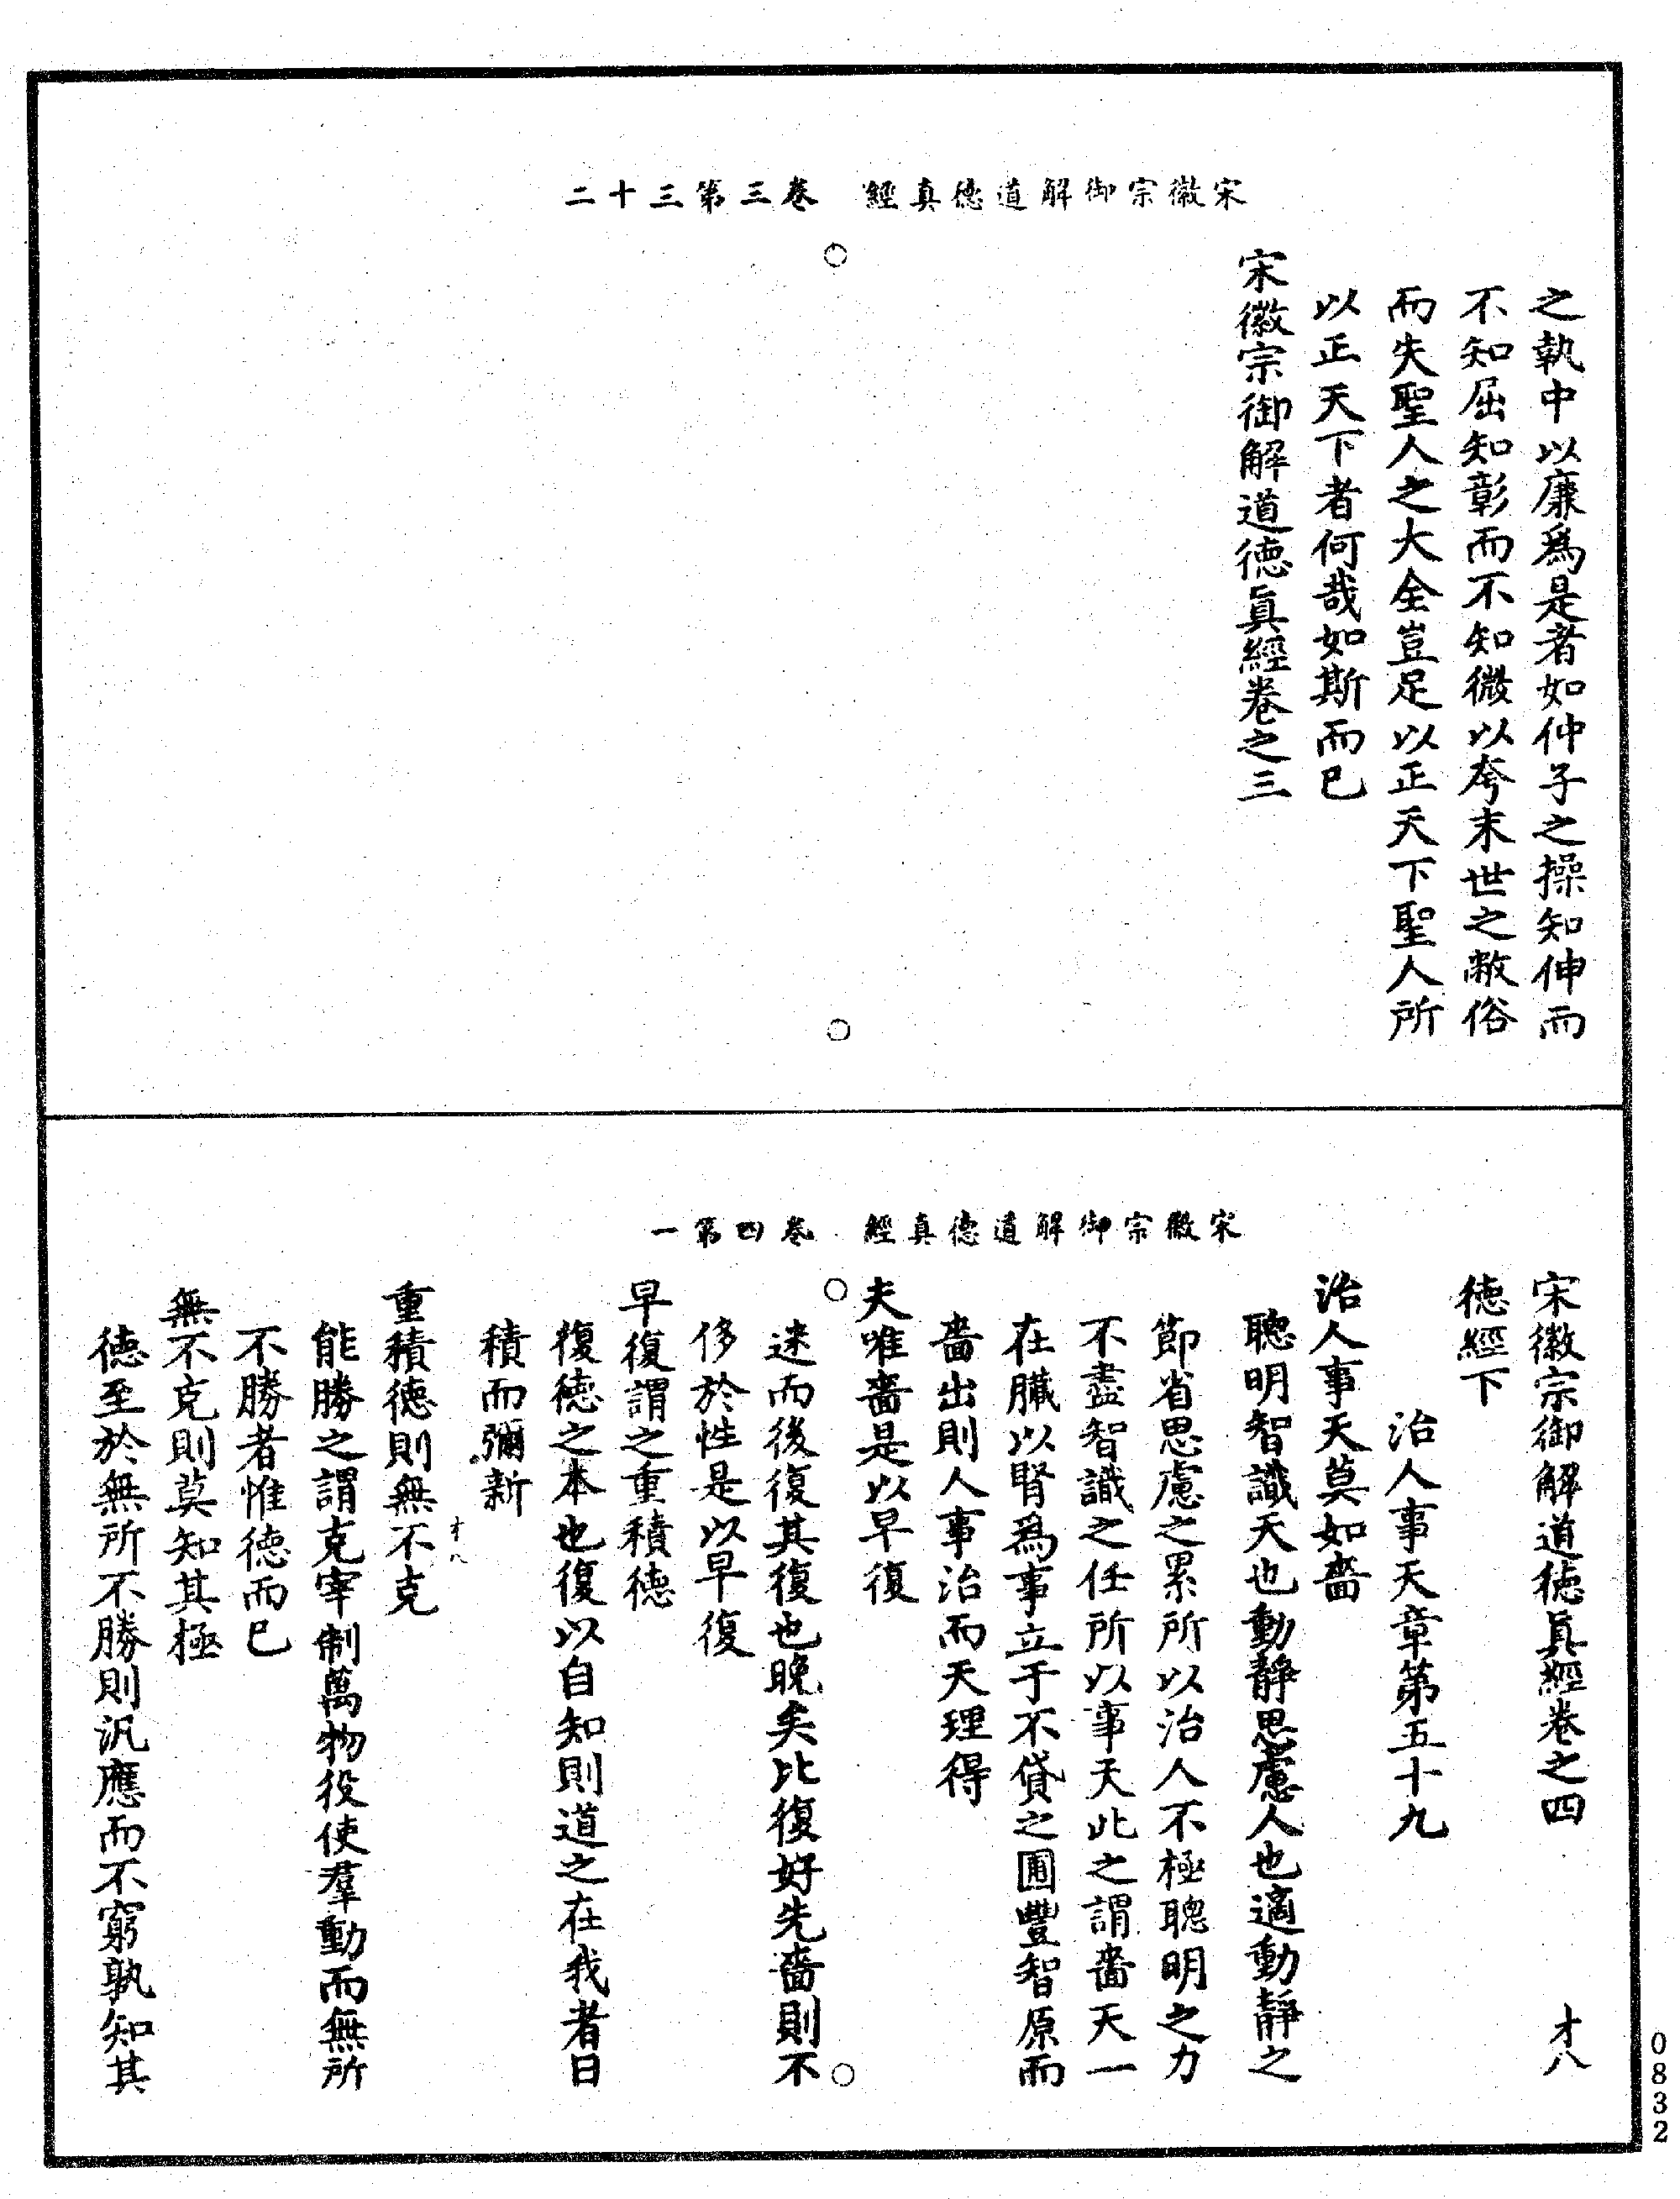 宋徽宗御解道德真經　卷三第三十二
之執中以廉為是者如仲子之操知伸而
不知屈知彰而不知微以夸末世之敝俗
而失聖人之大全豈足以正天下聖人所
以正天下者何哉如斯而已
宋徽宗御解道德眞經卷之三
宋徽宗御解道德真經　卷四第一
宋徽宗御解道德眞經卷之四　才八
德經下
治人事天章第五十九
治人事天莫如嗇
聰明智識天也動靜思慮人也適動靜之
節省思慮之累所以治人不極聰明之力
不盡智識之任所以事天此之謂嗇天一
在臟以腎爲事立于不貸之圃豐智原而
嗇出則人事治而天理得
夫唯嗇是以早復
迷而後復其復也晚矣比復好先嗇則不
侈於性是以早復
早復謂之重積德
復德之本也復以自知則道之在我者日
積而彌新
重積德則無不克
才八
能勝之謂克宰制萬物役使羣動而無所
不勝者惟德而已
無不克則莫知其極
德至於無所不勝則汎應而不窮孰知其
0832